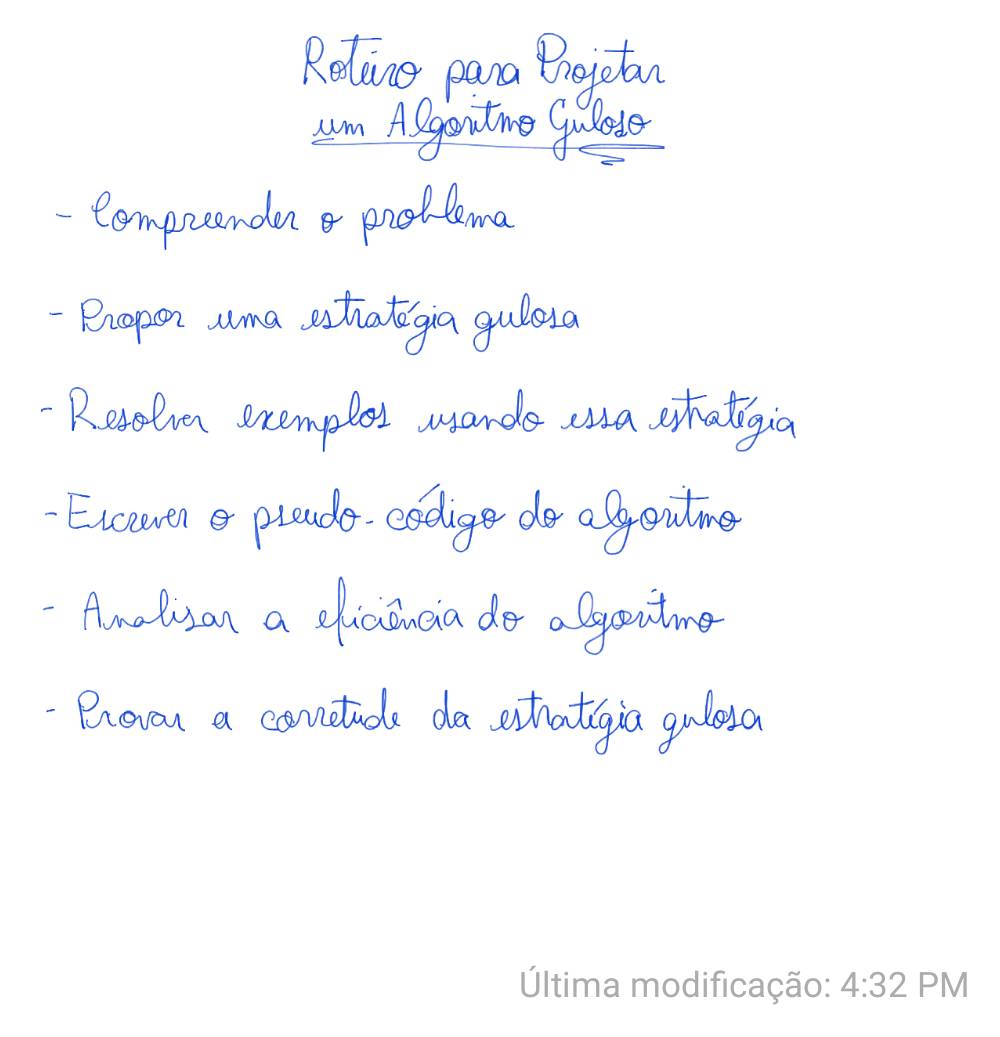 Roteiro para Projetar
um Algoritmo Guloso
- Compreender o problema
- Propor uma estratégia gulosa
- Resolver exemplos usando essa estratégia
- Escrever o pseudo-código do algoritmo
- Analisar a eficiência do algoritmo
- Provar a corretude da estratégia gulosa
Última modificação: 4:32 PM